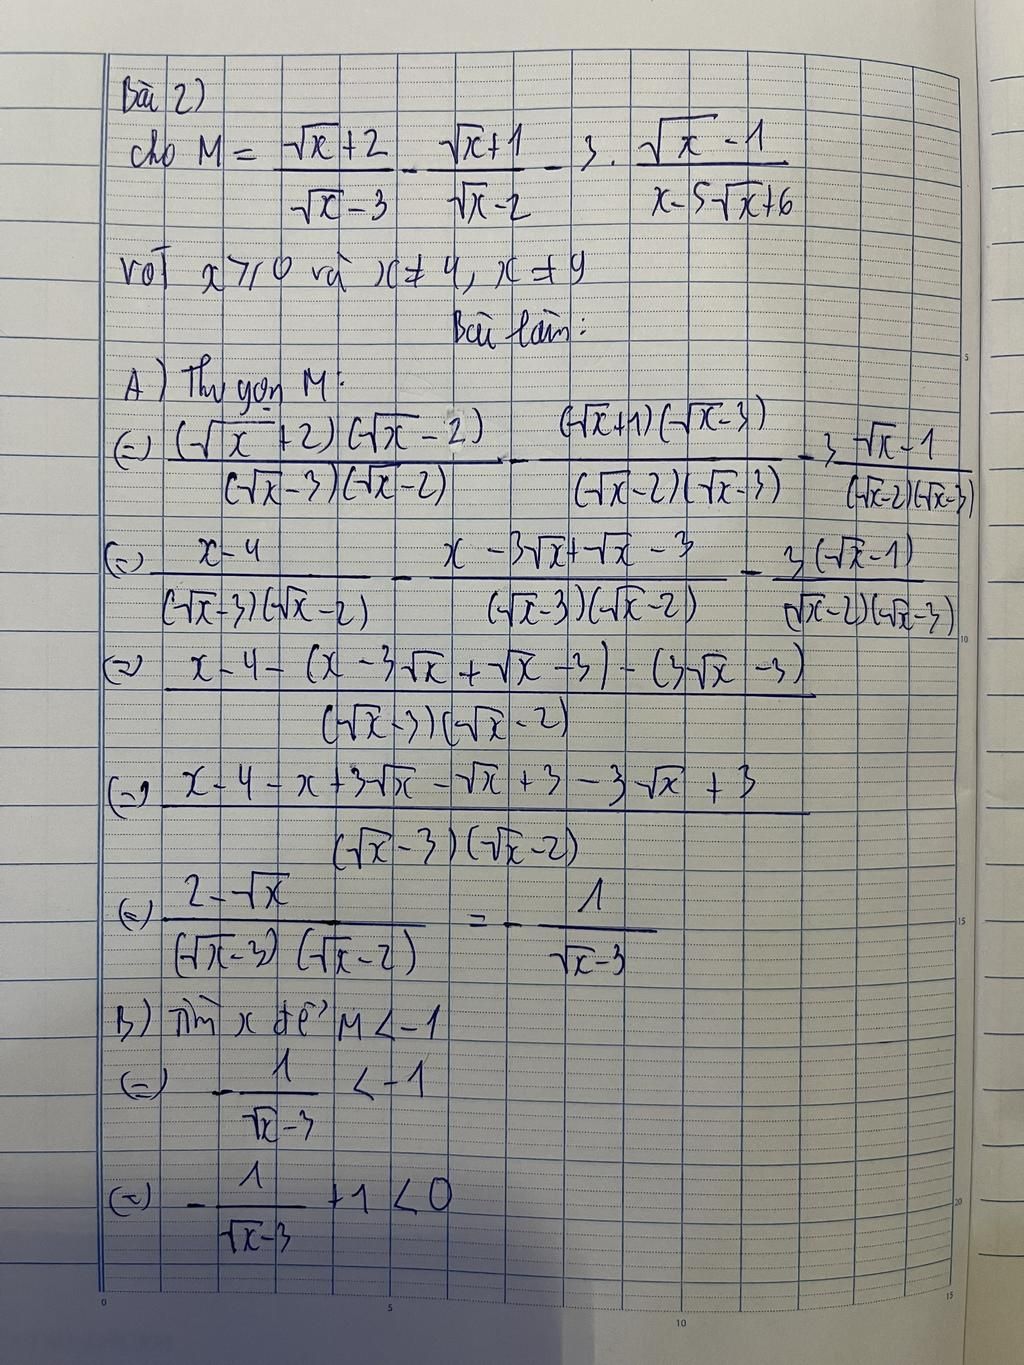 Bài 2)
cho M = (√x+2)/(√x-3) - (√x+1)/(√x-2) - 3. (√x-1)/(x-5√x+6)
với x ≥ 0 và x ≠ 4, x ≠ 9
Bài làm:
A) Thu gọn M:
(=) ((√x+2)(√x-2))/((√x-3)(√x-2)) - ((√x+1)(√x-3))/((√x-2)(√x-3)) - 3 (√x-1)/((√x-2)(√x-3))
(=) (x-4)/((√x-3)(√x-2)) - (x-3√x+√x-3)/((√x-3)(√x-2)) - (3(√x-1))/((√x-2)(√x-3))
(=) (x-4-(x-3√x+√x-3)-(3√x-3))/((√x-3)(√x-2))
(=) (x-4-x+3√x-√x+3-3√x+3)/((√x-3)(√x-2))
(=) (2-√x)/((√x-3)(√x-2)) = -1/(√x-3)
B) Tìm x để M < -1
(=) -1/(√x-3) < -1
(=) -1/(√x-3) + 1 < 0
0 5 10 15
5
10
15
20